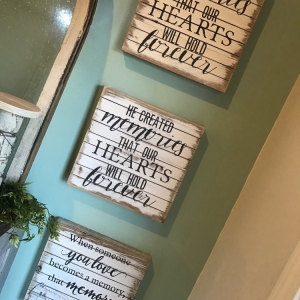 THAT OUR
HEARTS
WILL HOLD
forever
HE CREATED
memories
THAT OUR
HEARTS
WILL HOLD
forever
When someone
you love
becomes a memory,
that memory